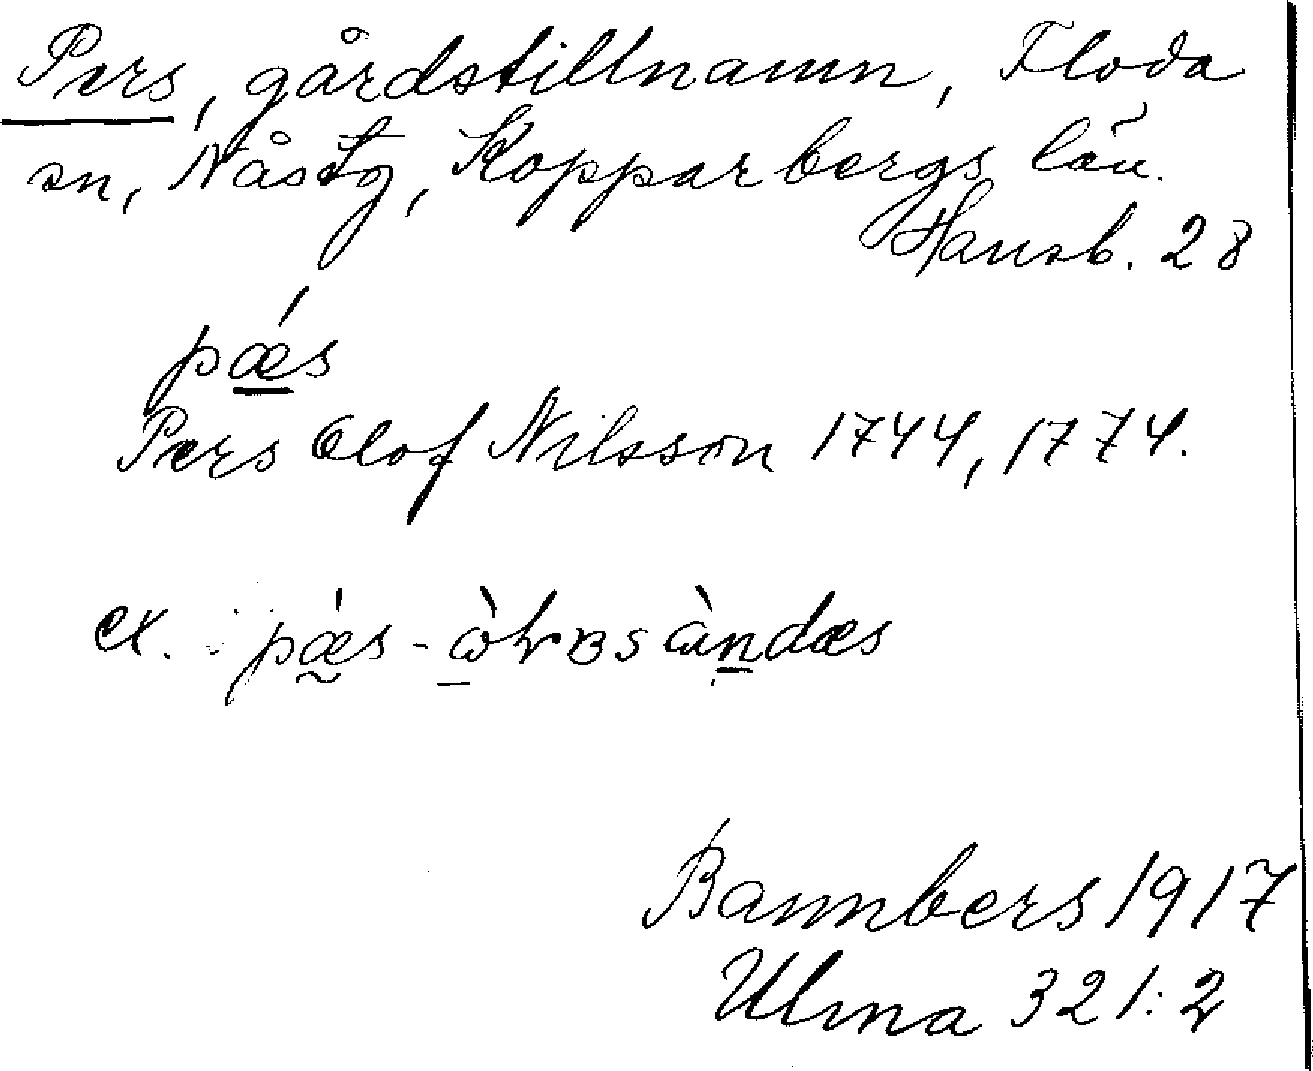 Pers, gårdstillnamn, Floda
sn, Nås tg, Kopparbergs län.
Hansb. 28
pǽs
Pers Olof Nilsson 1744, 1774.
ex. pǽs -
Bannbers 1917
Ulma 321:2